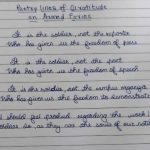 Poetry lines of Gratitude
on Armed Forces
It is the soldier, not the reporter
Who has given us the freedom of press
It is the soldier, not the poet
Who has given us the freedom of speech
It is the soldier, not the campus organizer
Who has given us the freedom to demonstrate
I should feel proud regarding the work
soldier is, as they are the souls of our nation